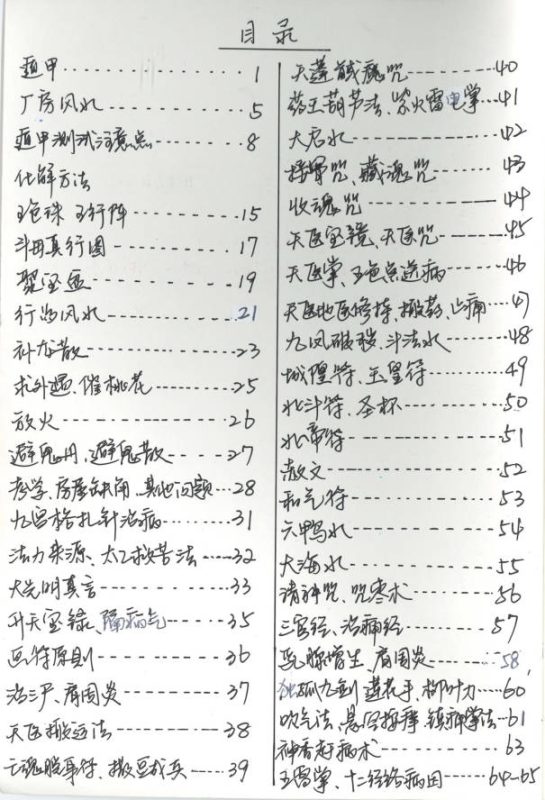 目录
遁甲 1
厂房风水 5
遁甲测试注意点 8
化解方法
五色珠 五行阵 15
斗母真行图 17
聚宝盆 19
行为风水 21
补龙散 23
求外遇、催桃花 25
放火 26
避鬼丹、避鬼散 27
考学、房屋缺角、其他问题 28
九宫格扎针治病 31
法力来源、太乙救苦法 32
大光明真言 33
升天宝箓、隔病气 35
画符原则 36
治三尸、肩周炎 37
天医搬运法 38
亡魂脱身符、撒豆成兵 39
天蓬馘魔咒 40
药王葫芦法、紫火雷电掌 41
大启水 42
接骨咒、藏魂咒 43
收魂咒 44
天医宝镜、天医咒 45
天医掌、五色点送病 46
天医地医修持、撒药、止痛 47
九凤破秽、斗法水 48
城隍符、玉皇符 49
北斗符、圣杯 50
北帝符 51
散文 52
和气符 53
六鸭水 54
大海水 55
清神咒、咒枣术 56
三官经、治神经 57
乳腺增生、肩周炎 58
独孤九剑 莲花手、柳叶刀 60
吹气法、悬空按摩、镇神掌法 61
神香疗病术 63
五雷掌、十二经络病因 64-65